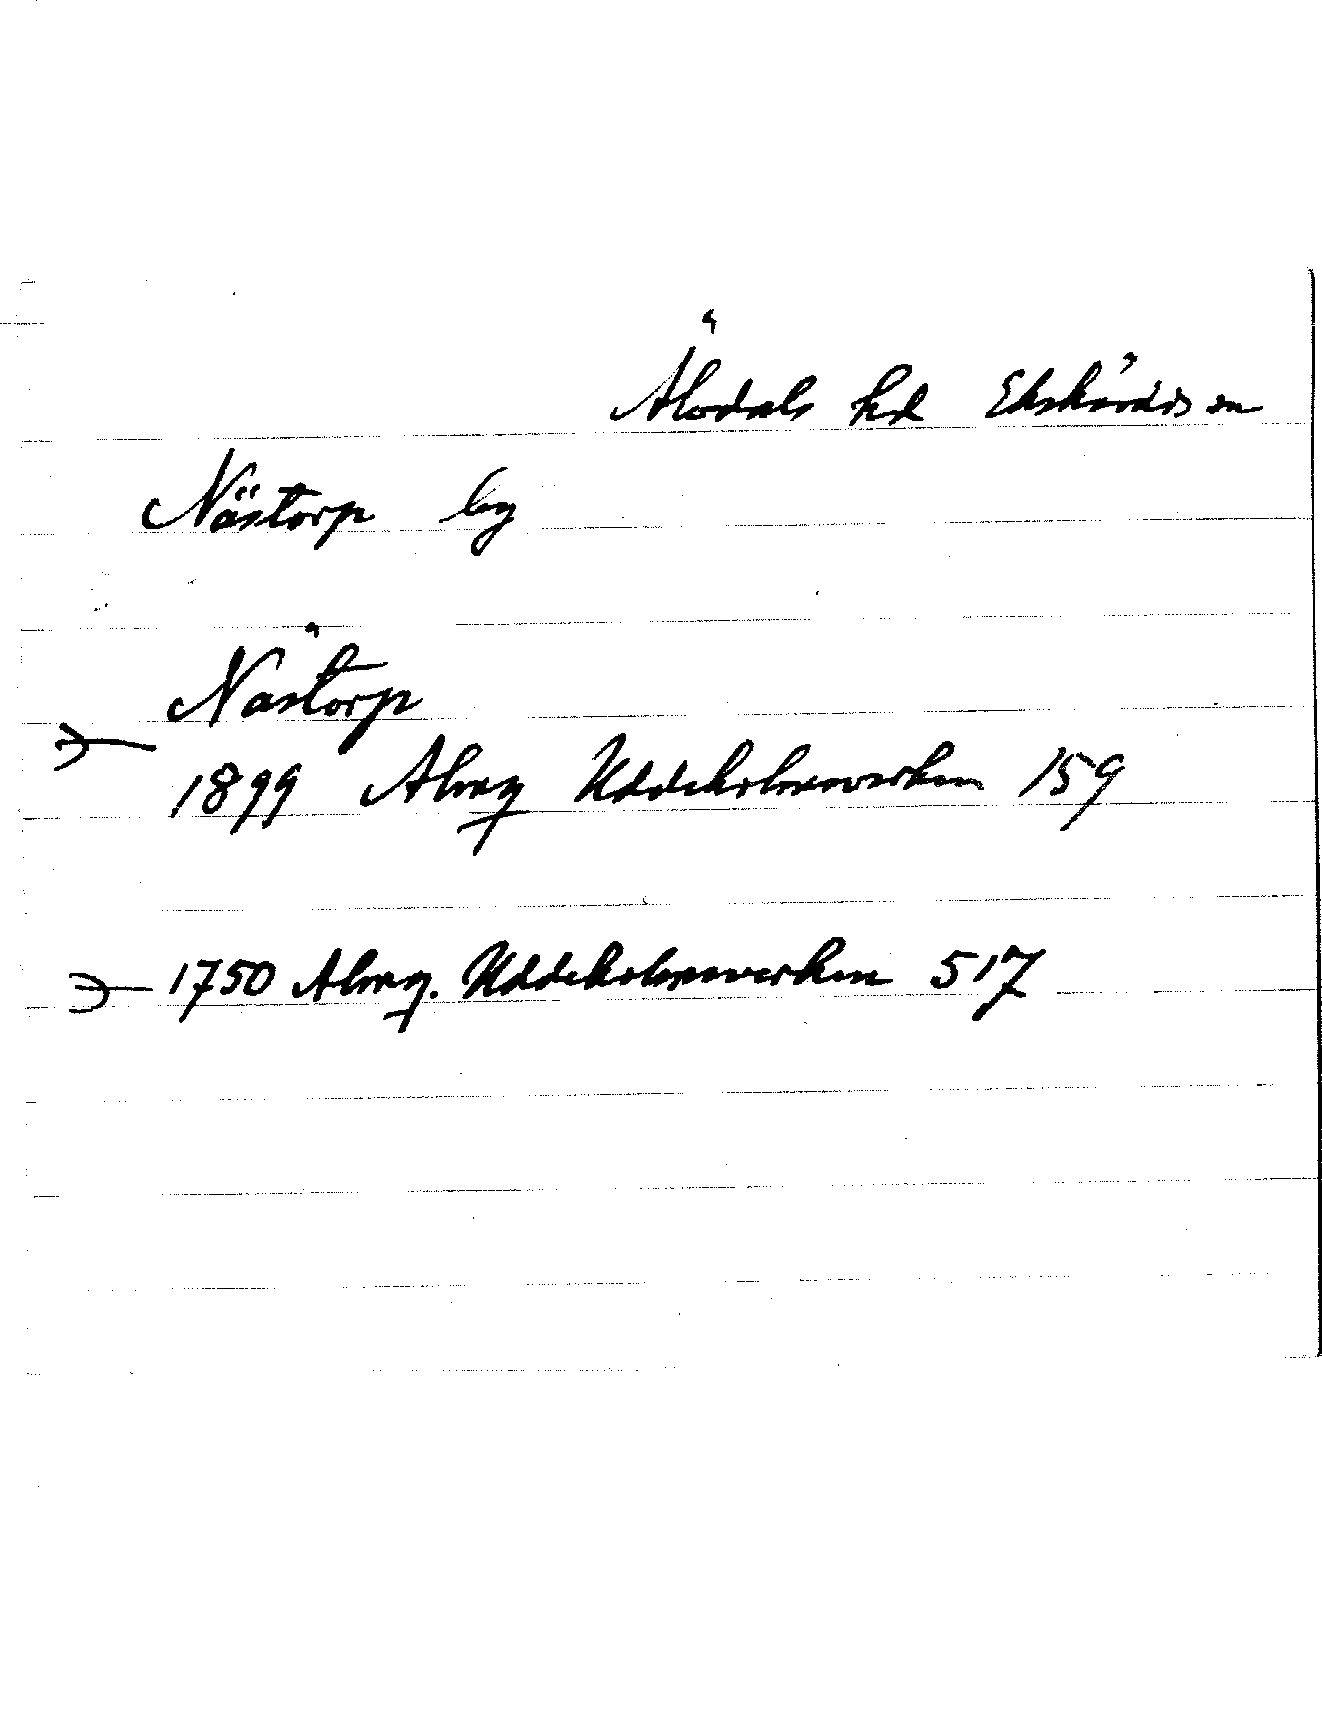 Älvdals hd Ekshärads sn
Nästorp by
Nåstorp
1899 Almq Uddeholmsverken 159
1750 Almq. Uddeholmsverken 517